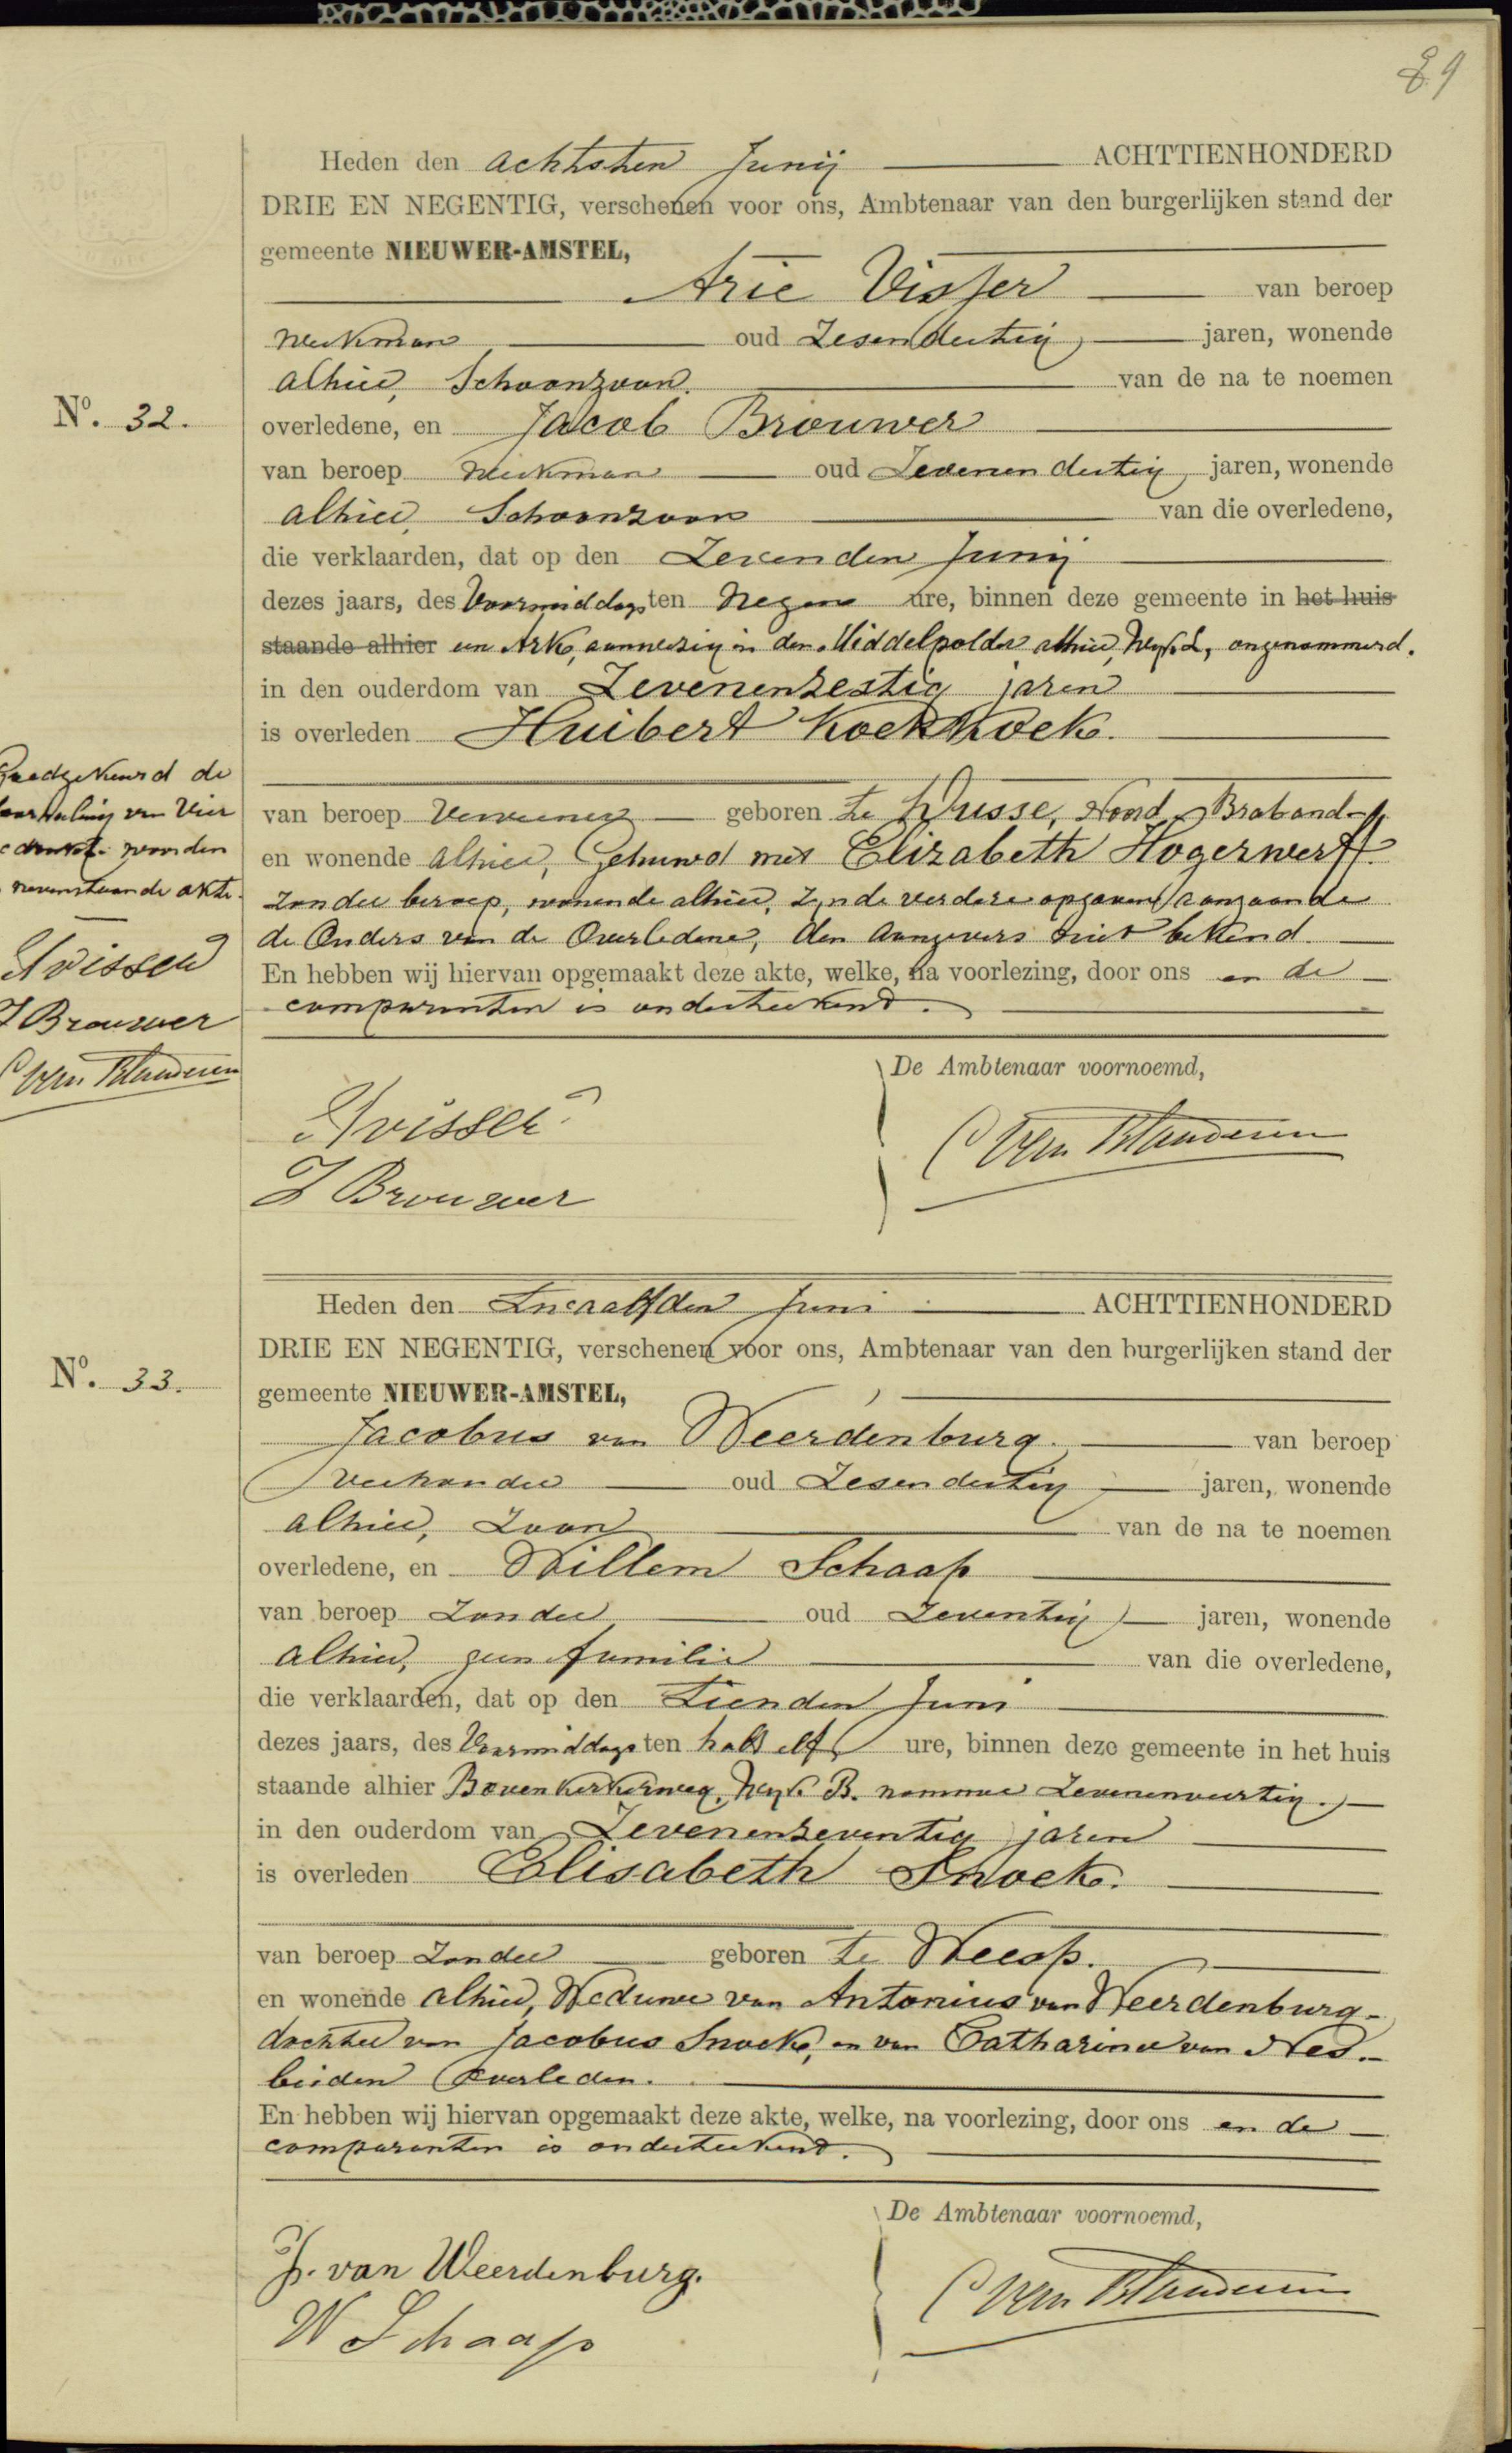 89
Heden den achtsten Junij ACHTTIENHONDERD
DRIE EN NEGENTIG, verschenen voor ons, Ambtenaar van den burgerlijken stand der
gemeente NIEUWER-AMSTEL,
Arie Visser van beroep
Werkman oud Zesendertig jaren, wonende
alhier, Schoonzoon van de na te noemen
No. 32.
overledene, en Jacob Brouwer
van beroep Werkman oud Zevenen dertig jaren, wonende
alhier, Schoonzoon van die overledene,
die verklaarden, dat op den Zevenden Junij
dezes jaars, des Voormiddags ten Negen ure, binnen deze gemeente in het huis
staande alhier een Ark, aanwezig in den Middelpolder alhier, Wijk, ongenommerd.
in den ouderdom van Zevenenzestig jaren
is overleden Huibert Koekkoek.
Goedgekeurd de
doorhaling van Vier
gedrukte woorden
nevenstaande akte.
AVisser
J Brouwer
van beroep Vervener geboren te Dussen, Noord-Braband
en wonende alhier, Gehuwd met Elizabeth Hogerwerff
zonder beroep, wonende alhier, zynde verdere opgaven aangaande
de Ouders van de Overledene, den Aangevers niet bekend.
En hebben wij hiervan opgemaakt deze akte, welke, na voorlezing, door ons en de
comparanten is onderteekend.
De Ambtenaar voornoemd,
AVisser
J Brouwer
Heden den Twaalfden Juni ACHTTIENHONDERD
DRIE EN NEGENTIG, verschenen voor ons, Ambtenaar van den burgerlijken stand der
No. 33.
gemeente NIEUWER-AMSTEL,
Jacobus van Weerdenburg. van beroep
Veehouder oud Zesendertig jaren, wonende
alhier, Zoon van de na te noemen
overledene, en Willem Schaap
van beroep Zonder oud Zeventig jaren, wonende
alhier, geen familie van die overledene,
die verklaarden, dat op den Tienden Juni
dezes jaars, des Voormiddags ten half elf ure, binnen deze gemeente in het huis
staande alhier Bovenkerkerweg, Wyk B. nommer Zevenenveertig.
in den ouderdom van Zevenenzeventig jaren
is overleden Elisabeth Snoek.
van beroep Zonder geboren te Weesp.
en wonende alhier, Weduwe van Antonius van Weerdenburg
dochter van Jacobus Snoek, en van Catharina van Nes.
beiden Overleden.
En hebben wij hiervan opgemaakt deze akte, welke, na voorlezing, door ons en de
comparanten is onderteekend.
De Ambtenaar voornoemd,
J. van Weerdenburg.
W Schaap